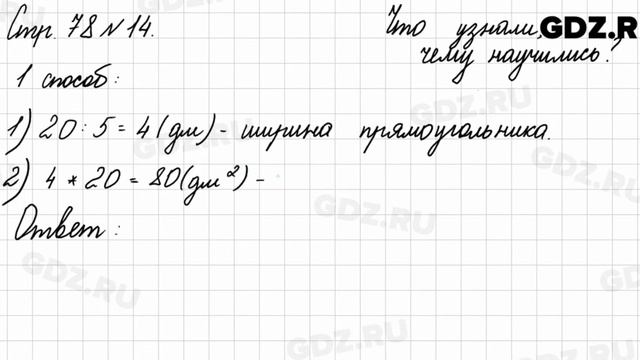 Стр. 78 № 14.
Что узнали,
чему научились?
GDZ.R
1 способ:
1) 20 : 5 = 4 (дм) - ширина прямоугольника.
2) 4 * 20 = 80 (дм²) -
Ответ :
GDZ.RU
GDZ.RU
GDZ.RU
GDZ.RU
GDZ.RU